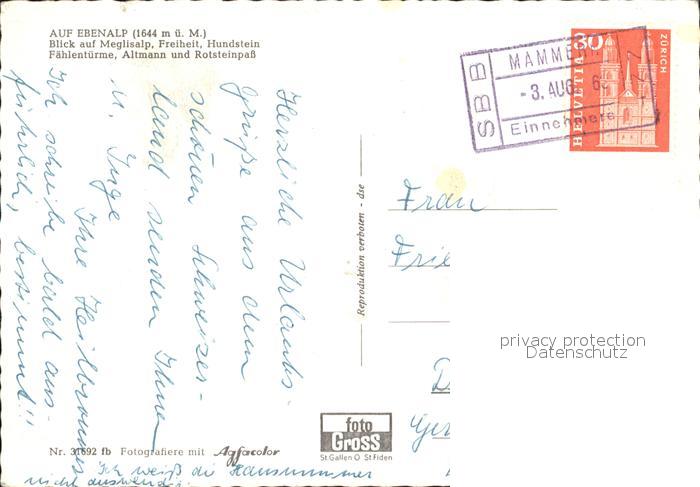 AUF EBENALP (1644 m ü. M.)
Blick auf Meglisalp, Freiheit, Hundstein
Fählentürme, Altmann und Rotsteinpaß
Herzliche Urlaubs-
grüße aus dem
schönen Schweizer-
land senden Ihnen
u. Inge
Ihre Heilbronner
Ich schreibe bald aus-
führlich, bestimmt!!
Ich weiß die Hausnummer
nicht auswendig
Nr. 31692 fb Fotografiere mit Agfacolor
Reproduktion verboten - dse
foto
Gross
St. Gallen O St. Fiden
SBB
MAMMERN
-3. AUG. 6
Einnehmerei
30
HELVETIA
ZÜRICH
Frau
Frie
D
Ger
privacy protection
Datenschutz